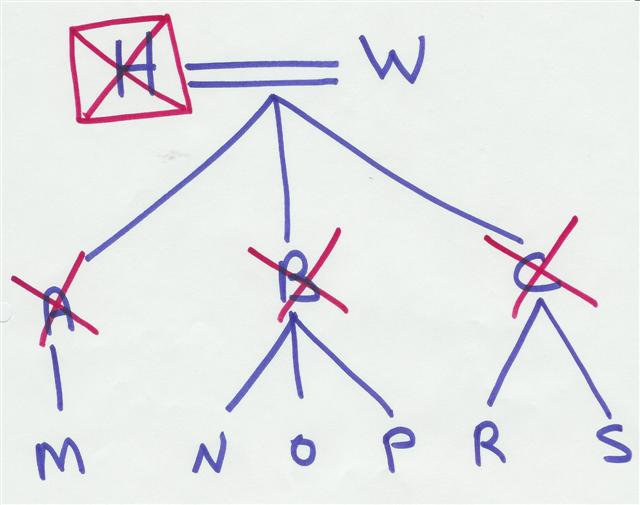 H W
A B C
M N O P R S